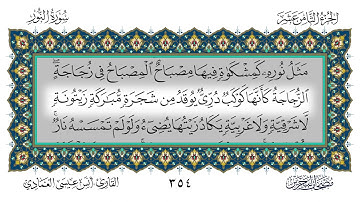 الجزء الثامن عشر
سورة النور
مَثَلُ نُورِهِۦ كَمِشْكَوٰةٍ فِيهَا مِصْبَاحٌ ۖ ٱلْمِصْبَاحُ فِى زُجَاجَةٍ ۖ
ٱلزُّجَاجَةُ كَأَنَّهَا كَوْكَبٌ دُرِّىٌّ يُوقَدُ مِن شَجَرَةٍ مُّبَٰرَكَةٍ زَيْتُونَةٍ
لَّا شَرْقِيَّةٍ وَلَا غَرْبِيَّةٍ يَكَادُ زَيْتُهَا يُضِىٓءُ وَلَوْ لَمْ تَمْسَسْهُ نَارٌ ۚ
٣٥٤